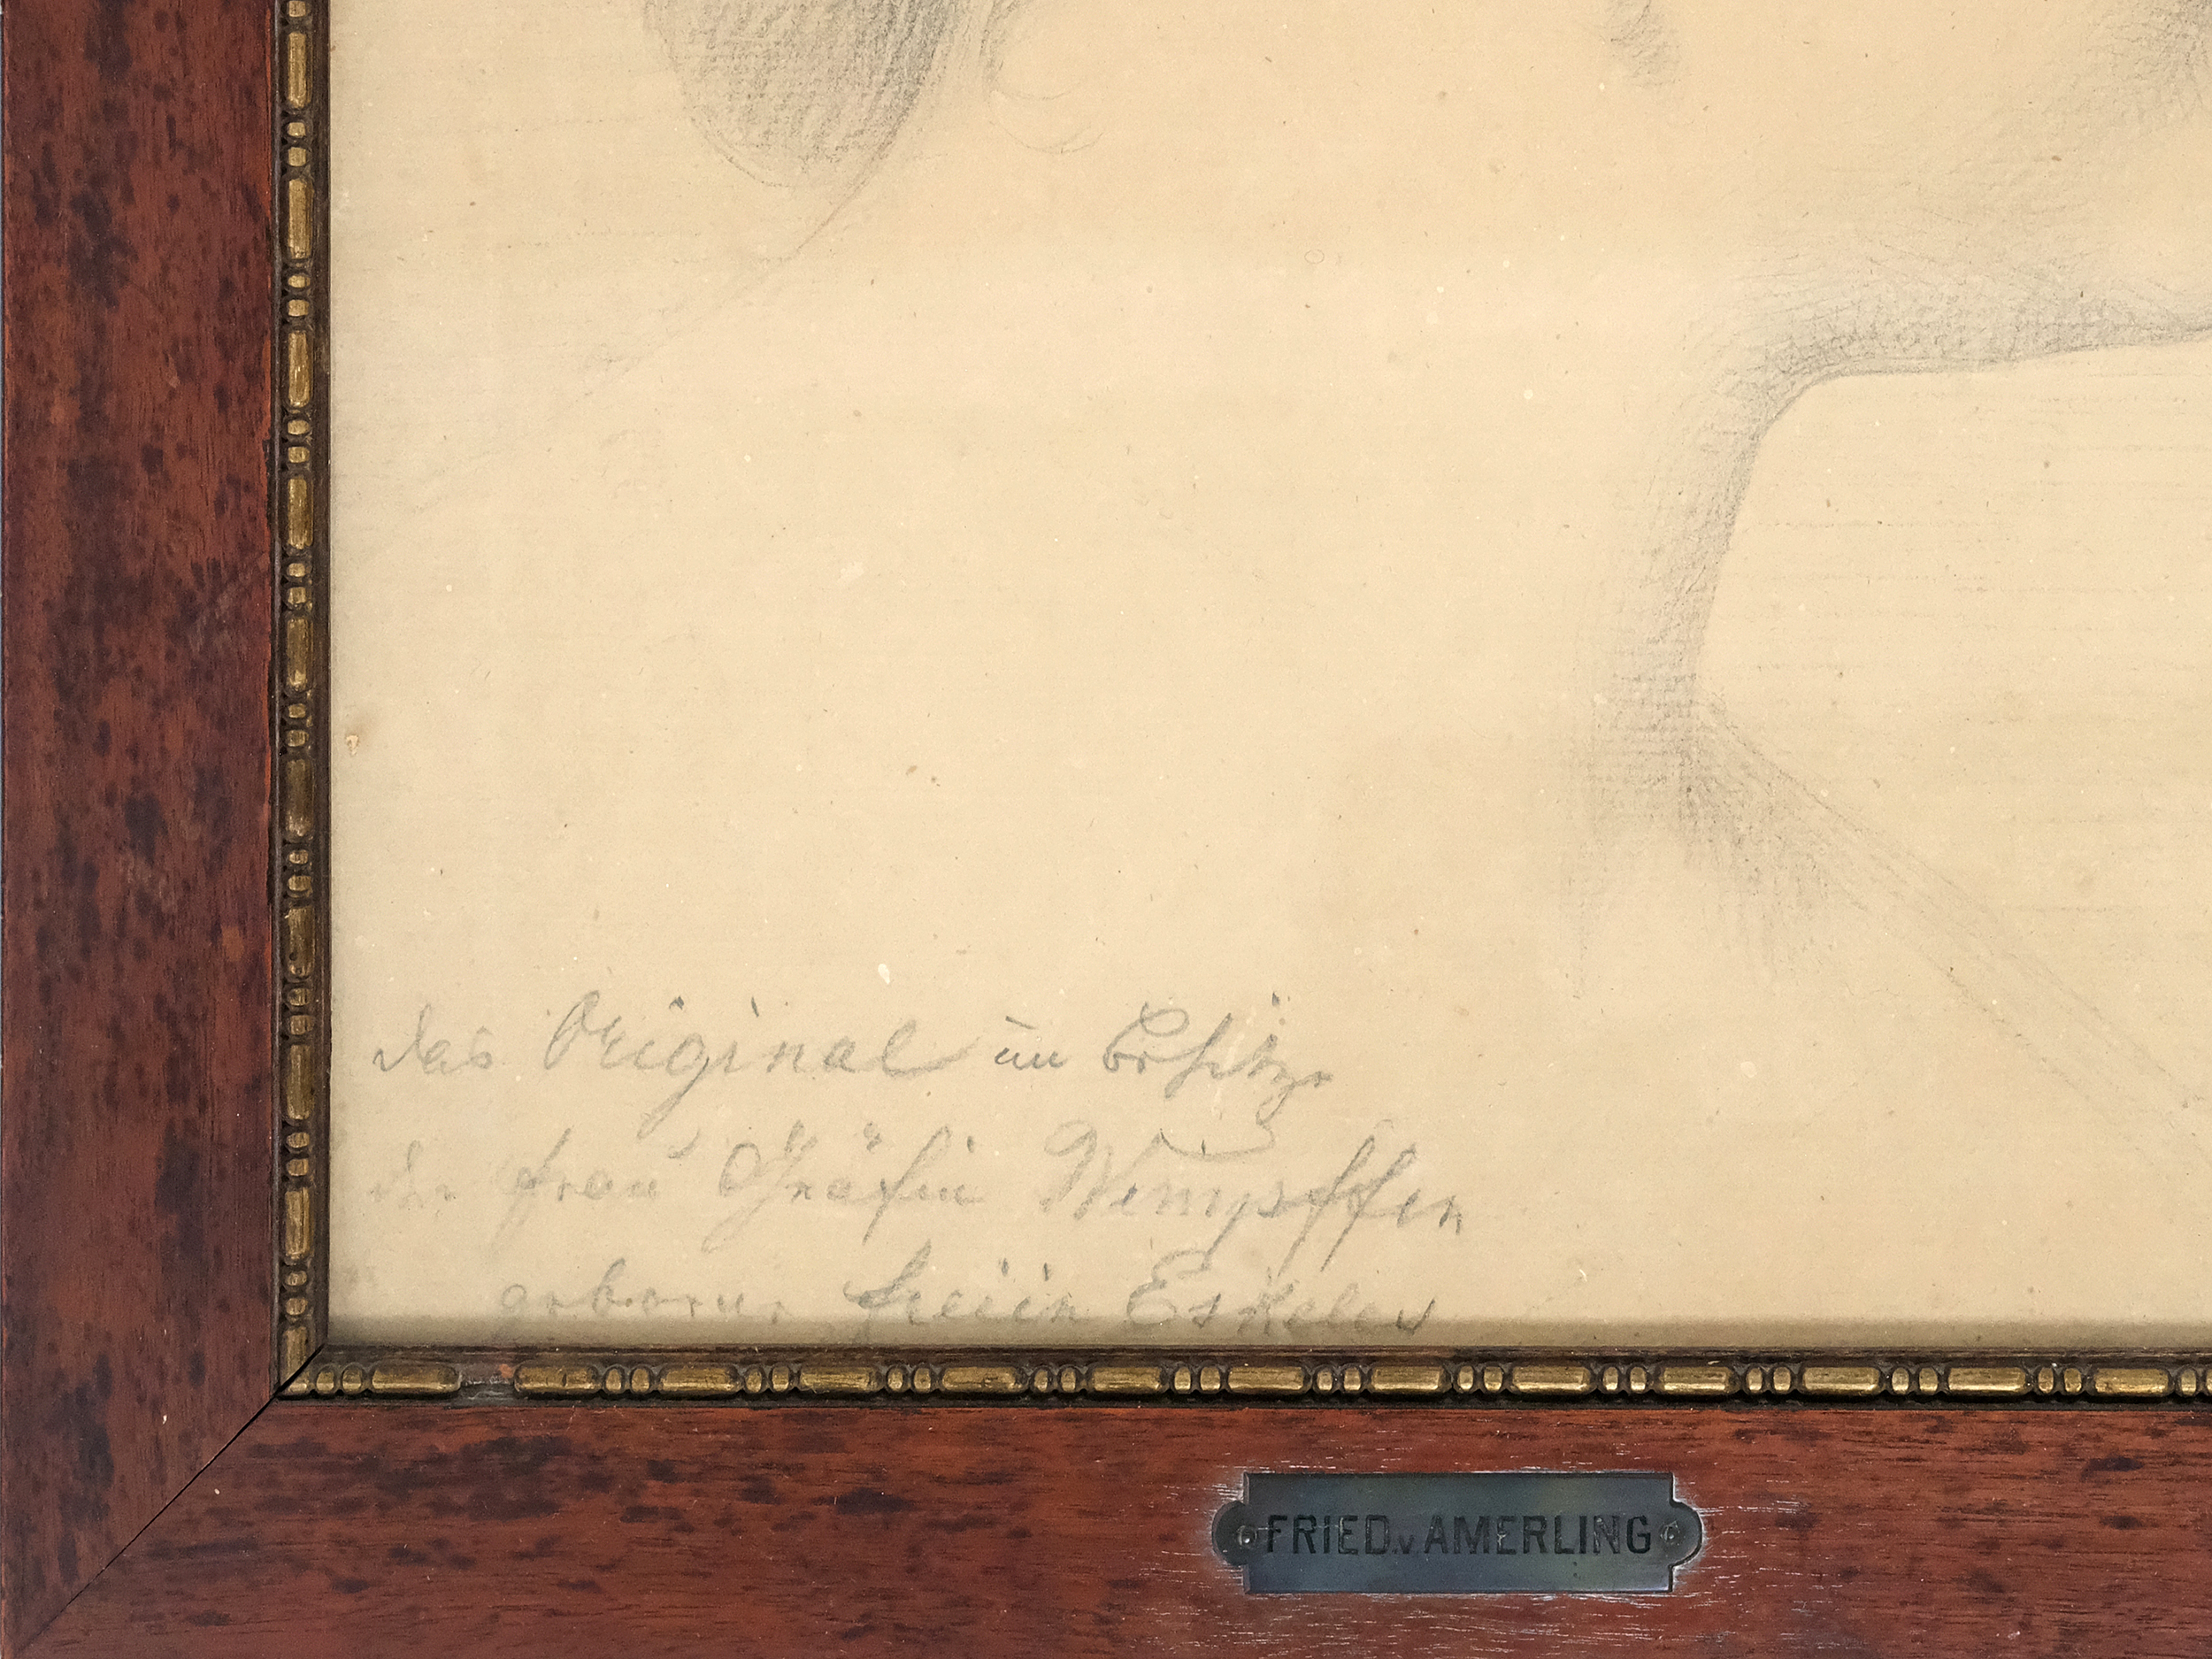 das Original im Besitze
der Frau Gräfin Wimpffen
geborne Freiin Eskeles
FRIED.v AMERLING